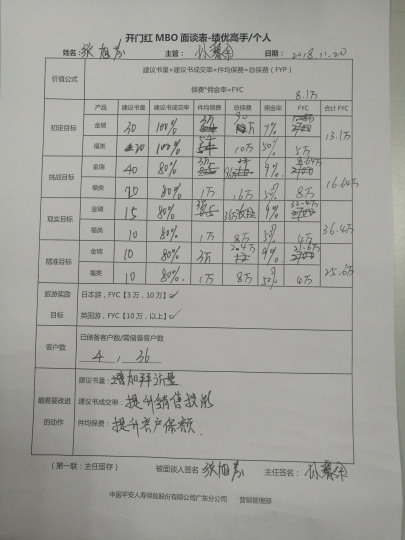 开门红 MBO 面谈表-绩优高手/个人
姓名: 张旭芬 主管: 日期: 2018.11.20
价值公式 建议书量*建议书成交率*件均保费=总保费(FYP)
保费*佣金率=FYC
8.1万
产品 建议书量 建议书成交率 件均保费 总保费 佣金率 FYC 合计 FYC
初定目标 金瑞 30 100% 3万 90万 9% 13.1万
福类 20 100% 10万 50% 5万
挑战目标 金瑞 40 80% 3万 9% 8.64万 16.64万
福类 20 80% 1万 16万 50% 8万
现实目标 金瑞 15 80% 9% 32.4万 36.4万
福类 10 80% 1万 8万 50% 4万
精准目标 金瑞 10 80% 3万 9% 21.6万 25.6万
福类 10 80% 1万 8万 50% 4万
旅游奖励 日本游,FYC【3万,10万】✓
目标 美国游,FYC【10万,以上】✓
客户数 已储备客户数/需储备客户数
4 , 36
最需要改进的动作
建议书量: 增加拜访量
建议书成交率: 提升销售技能
件均保费: 提升客户保额
(第一联:主任留存) 被面谈人签名: 张旭芬 主任签名:
中国平安人寿保险股份有限公司广东分公司 营销管理部